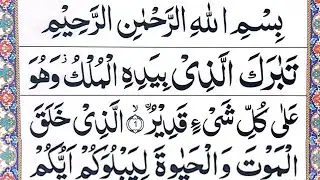 بِسْمِ اللهِ الرَّحْمٰنِ الرَّحِيْمِ
تَبٰرَكَ الَّذِىْ بِيَدِهِ الْمُلْكُ ۫ وَهُوَ
عَلٰى كُلِّ شَىْءٍ قَدِيْرُ ۙ﴿۱﴾ ۨالَّذِىْ خَلَقَ
الْمَوْتَ وَالْحَيٰوةَ لِيَبْلُوَكُمْ اَيُّكُمْ